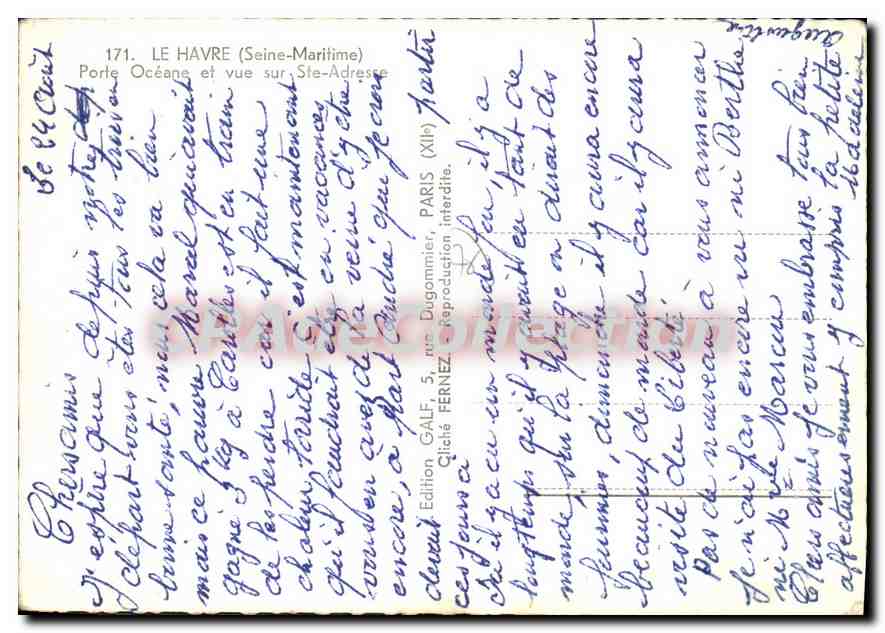 171. LE HAVRE (Seine-Maritime)
Porte Océane et vue sur Ste-Adresse
Edition GALF, 5, rue Dugommier, PARIS (XIIe)
Cliché FERNEZ. Reproduction interdite.
APCollection
Le 24 Août
Chers amis
J'espère que depuis votre
départ vous êtes tous les trois en
bonne santé, moi cela va bien
mais ce pauvre Marcel qui avait
gagné 3 kg à est en train
de les perdre car il fait une
chaleur torride c'est maintenant
qu'il faudrait être en vacances
vous en avez de la veine d'y être
encore, à part André que je crois
devait partir
ces jours ci
Ici il y a eu un monde fou, il y a
longtemps qu'il y avait eu tant de
monde, sur la plage on dirait des
fourmies, dimanche il y aura encore
beaucoup de monde car il y aura
visite du Liberté
Pas de nouveau à vous annoncer
Je n'ai pas encore vu ni Berthe
ni Mme Marcin
Chers amis je vous embrasse tous bien
affectueusement y compris la petite
Madeleine
Augustine